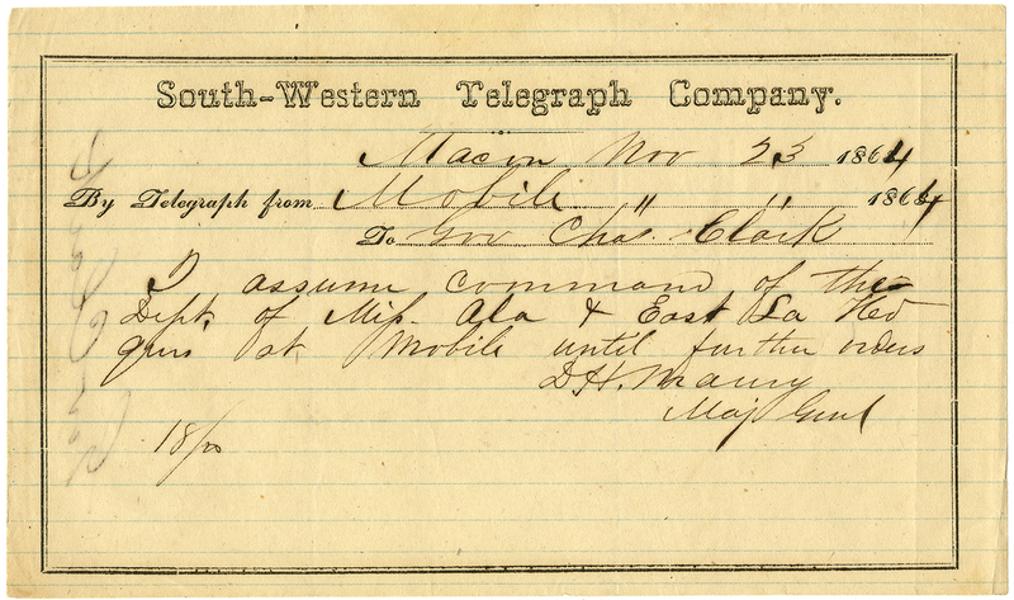 South-Western Telegraph Company.
Macon Nov 23 1864
By Telegraph from Mobile " " 1864
To Gov Chas. Clark
I assume command of the
Dept. of Miss. Ala & East La Hed
qurs at Mobile until further orders
D H. Maury
Maj Genl
18/